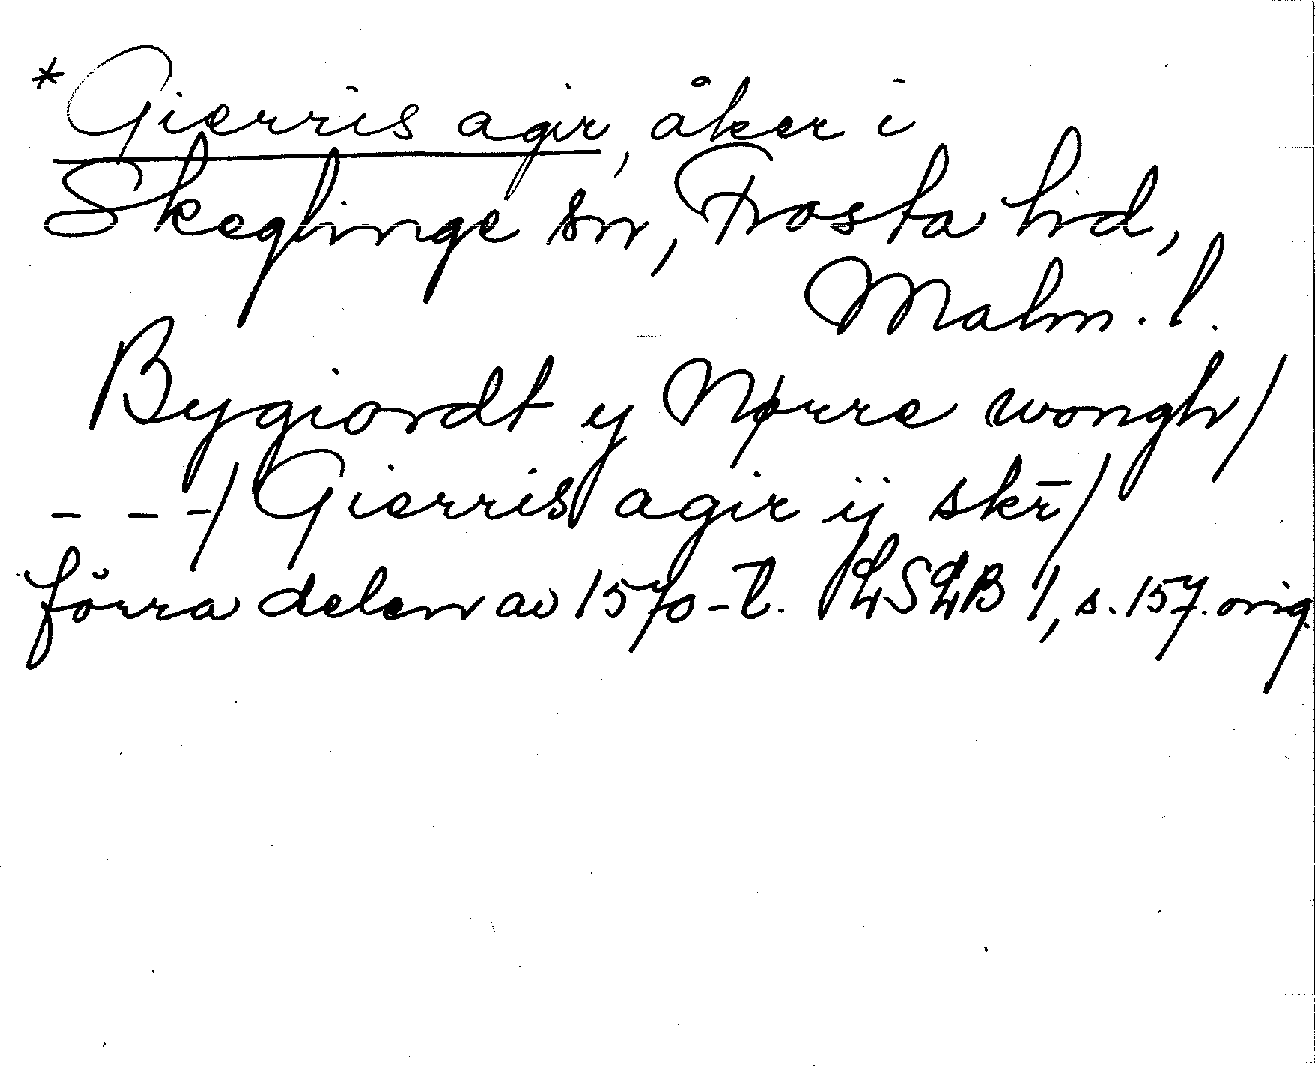 *Gierris agir, åker i
Skeglinge sn, Frosta hd,
Malm. l.
Bygiordt y Nørre wongh/
- - -/ Gierris agir ij skr̄/
förra delen av 1570-t. LSLB 1, s. 157. orig.